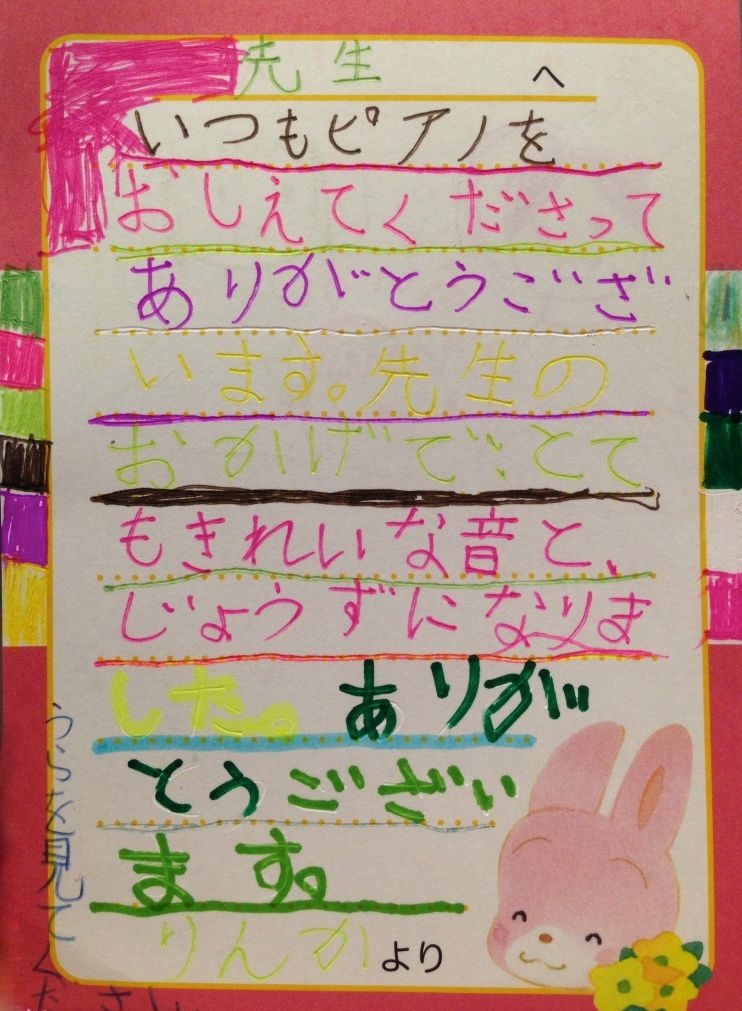 先生 へ
いつもピアノを
おしえてくださって
ありがとうござ
います。先生の
おかげで、とて
もきれいな音と、
じょうずになりま
した。ありが
とうござい
ます。
りんか より
うらを見てください